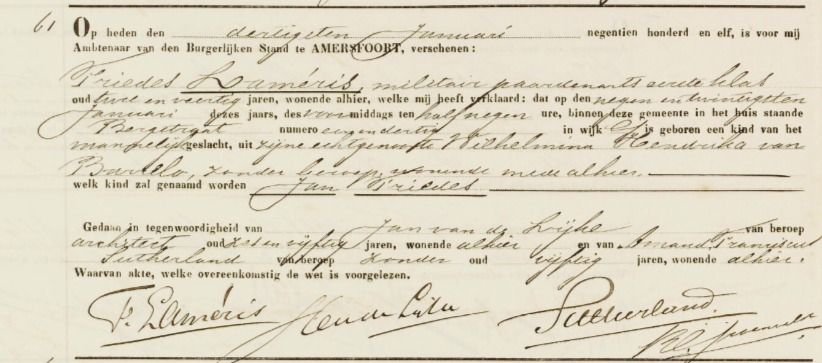 61 Op heden den dertigsten Januari negentien honderd en elf, is voor mij
Ambtenaar van den Burgerlijken Stand te AMERSFOORT, verschenen:
Friedes Laméris, militair paardenarts eerste klas
oud twee en veertig jaren, wonende alhier, welke mij heeft verklaard: dat op den negen en twintigsten
Januari dezes jaars, des voormiddags ten half negen ure, binnen deze gemeente in het huis staande
Bergstraat numero een en dertig in wijk is geboren een kind van het
mannelijk geslacht, uit zijne echtgenoote Wilhelmina Hendrika van
Barelo, zonder beroep, wonende mede alhier.
welk kind zal genaamd worden Jan Friedes
Gedaan in tegenwoordigheid van Jan van de van beroep
architect oud zes en vijftig jaren, wonende alhier en van Amand Franciscus
Sutherland van beroep zonder oud vijftig jaren, wonende alhier.
Waarvan akte, welke overeenkomstig de wet is voorgelezen.
F. Laméris Sutherland.